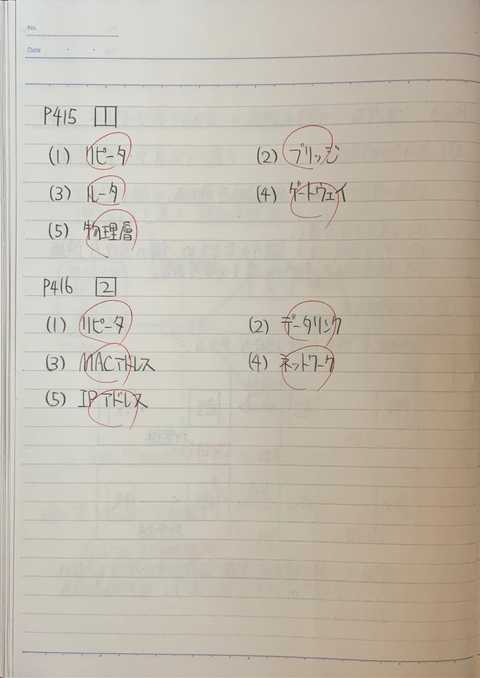 No.
Date
P415 1
(1) リピータ (2) ブリッジ
(3) ルータ (4) ゲートウェイ
(5) 物理層
P416 2
(1) リピータ (2) データリンク
(3) MACアドレス (4) ネットワーク
(5) IPアドレス